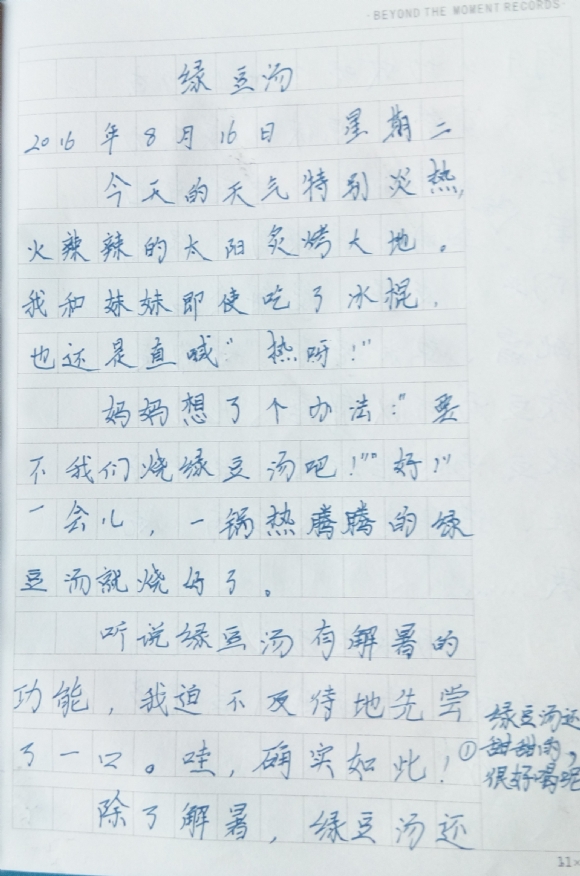 ·BEYOND THE MOMENT RECORDS·
绿豆汤
2016年8月16日 星期二
今天的天气特别炎热,
火辣辣的太阳炙烤大地。
我和妹妹即使吃了冰棍,
也还是直喊“热呀!”
妈妈想了个办法:“要
不我们烧绿豆汤吧!”“好!”
一会儿,一锅热腾腾的绿
豆汤就烧好了。
听说绿豆汤有解暑的
功能,我迫不及待地先尝
了一口。哇,确实如此!①
绿豆汤还
甜甜的,
很好喝呢
除了解暑,绿豆汤还